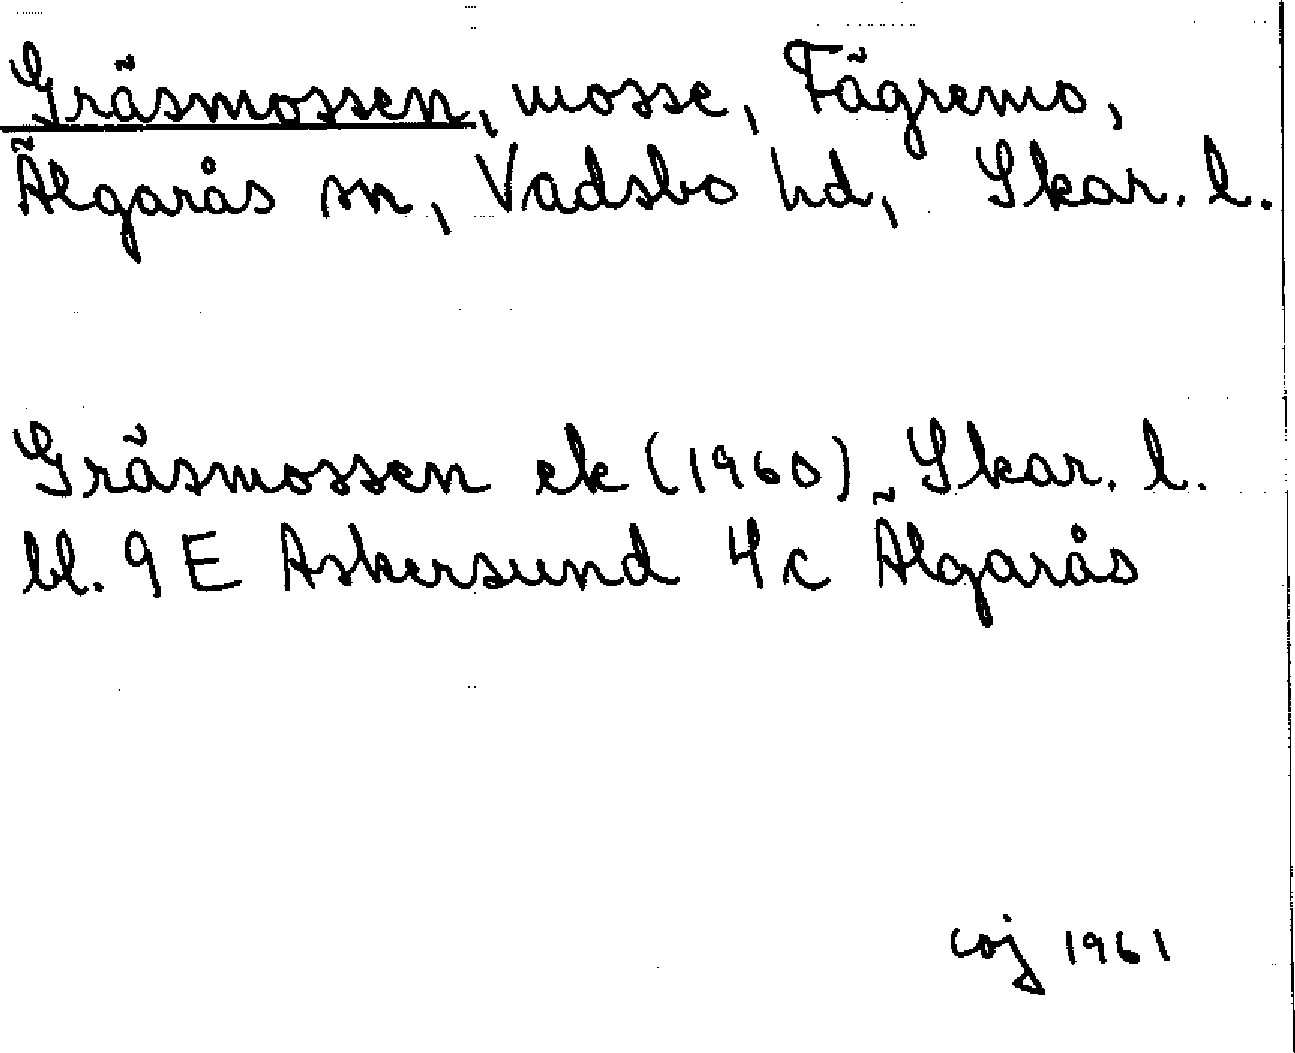 Gräsmossen, mosse, Fägremo,
Älgarås sn, Vadsbo hd, Skar. l.
Gräsmossen ek (1960), Skar. l.
bl. 9E Askersund 4c Älgarås
coj 1961